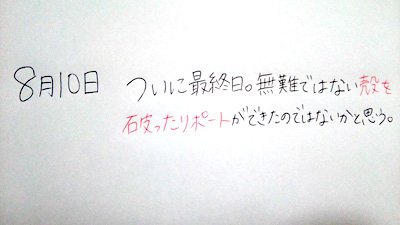 8月10日 ついに最終日。無難ではない殻を
破ったリポートができたのではないかと思う。